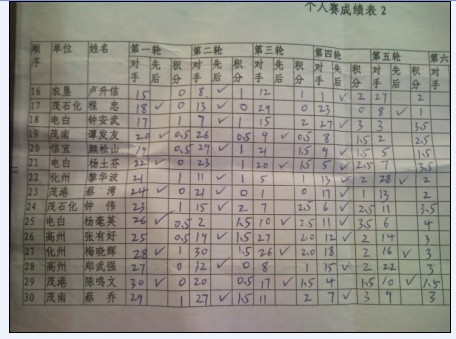 个人赛成绩表2
顺序 单位 姓名 第一轮 第二轮 第三轮 第四轮 第五轮 第六
对手 先后 积分 对手 先后 积分 对手 先后 积分 对手 先后 积分 对手 先后 积分
16 农垦 卢升信 15 0 8 ✓ 1 12 1 1 ✓ 2 27 2
17 茂石化 程忠 18 ✓ 0 13 ✓ 0 29 0 23 0 8 ✓ 1
18 电白 钟安武 17 1 9 ✓ 1 15 2 27 ✓ 3 3 3.5
19 茂南 谭发友 20 ✓ 0.5 26 0.5 9 ✓ 0.5 8 1.5 2 2.5
20 信宜 颜松山 19 0.5 29 ✓ 1 21 1.5 9 ✓ 1.5 5 1.5
21 电白 杨土芬 22 ✓ 0 23 1 20 ✓ 1.5 5 ✓ 2.5 7 3.5
22 化州 黎华波 21 1 11 ✓ 1 5 1 13 ✓ 2 28 ✓ 2
23 茂港 蔡湾 24 ✓ 0 21 ✓ 0 1 0 17 ✓ 1 13 2
24 茂石化 钟伟 23 1 15 ✓ 2 7 2.5 6 ✓ 2.5 11 3.5
25 电白 杨毫英 26 ✓ 0.5 2 1.5 10 ✓ 2.5 11 ✓ 3.5 6 4
26 高州 张有好 25 0.5 19 ✓ 1.5 27 2.0 12 ✓ 2 14 3
27 化州 梅晓辉 28 ✓ 1 30 1.5 26 ✓ 2.0 18 2 16 ✓ 3
28 高州 郑武强 27 0 12 ✓ 0 8 1 15 ✓ 2 22 3
29 茂港 陈鸣文 30 ✓ 0 20 0.5 17 ✓ 1.5 4 1.5 10 ✓ 1.5
30 茂南 蔡乔 29 1 27 ✓ 1.5 11 2 7 ✓ 3 9 3